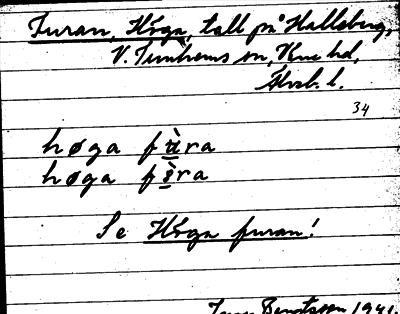 Furan, Höga, tall på Hallsberg,
V. Tunhems sn, Väne hd,
Älvsb. l.
34
høga fùra
høga fɵ̀ra
Se Höga furan!
Bengtsson 1941.